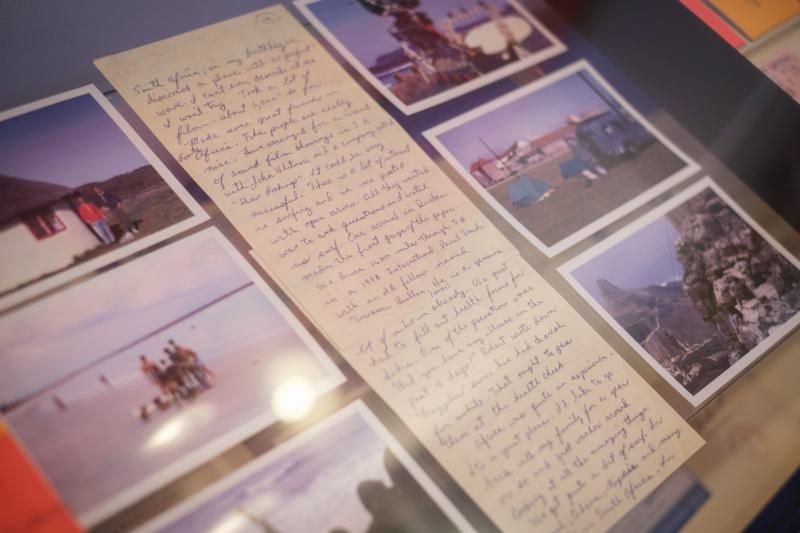 South Africa, on my birthday we
discovered a place with a perfect
wave. I can't even describe it so
I won't try. Took a lot of
film - about 6,000' so far.
Made some great friends in
South Africa. The people are really
nice. Have arranged for a
of sound film showings in S.A.
with John Whitmore and a company called
"Show Bookings". It could be very
successful. There is a lot of interest
in surfing and we were greeted
with open arms. All they wanted
was to ask questions and watch
us surf. Our arrival in Durban
made the front page of the paper.
We drove 1600 miles through S.A.
in a 1948 International Panel Truck
with an old fellow named
Terrence Bullen. He is a genuine
lot of miles already. We just
had to fill out health forms for
. One of the questions was
"Did you have any illness in the
past 9 days". Robert wrote down
"Dayyyhia" since he had
for a while. That ought to get
them at the health check.
Africa was quite an experience.
It's a great place. I'd like to go
back with my family for a year
or so and just wander around
looking at all the amazing things.
We got quite a bit of surf in
, Ghana, and many
in South Africa. In